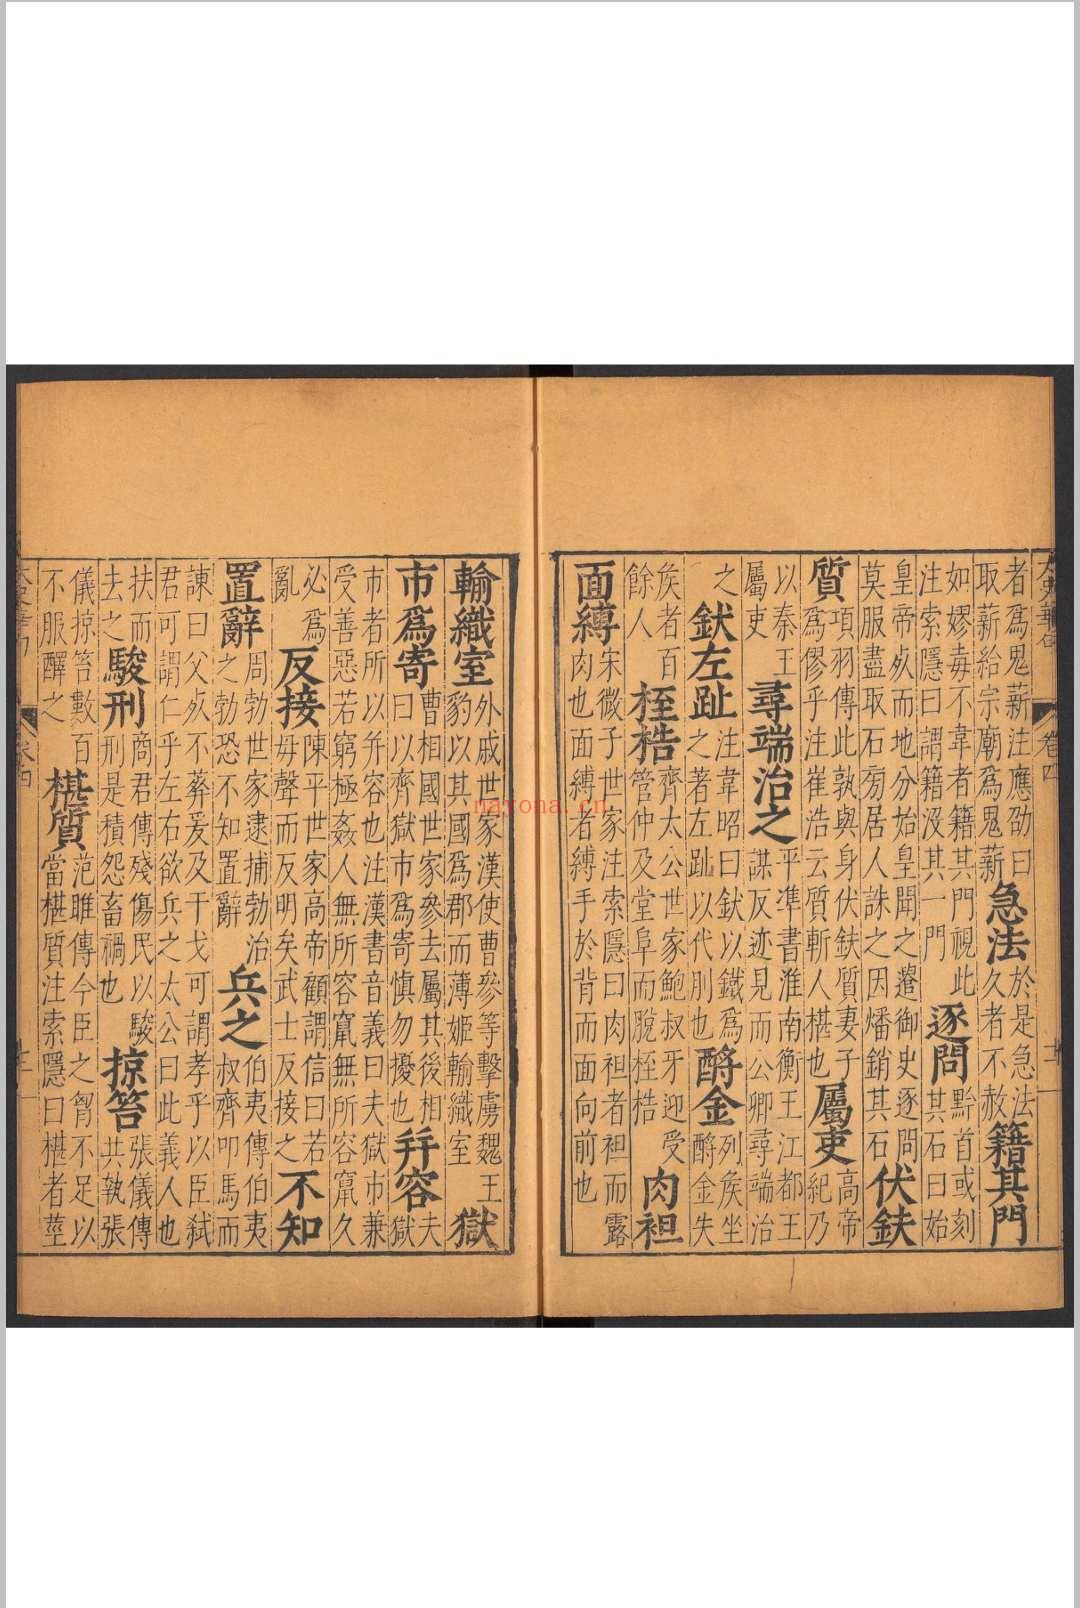 者爲鬼薪注應劭曰
取薪給宗廟爲鬼薪
急法
於是急法
久者不赦
籍其門
如嫪毐不韋者籍其門視此
注索隱曰謂籍沒其一門
逐問
黔首或刻
其石曰始
皇帝死而地分始皇聞之遣御史逐問
莫服盡取石旁居人誅之因燔銷其石
伏鈇
質
項羽傳此孰與身伏鈇質妻子
爲僇乎注崔浩云質斬人椹也
屬吏
高帝
紀乃
以秦王
屬吏
尋端治之
平準書淮南衡王江都王
謀反迹見而公卿尋端治
之
鈇左趾
注韋昭曰鈇以鐵爲
之著左趾以代刖也
酹金
列矦坐
酹金失
矦者百
餘人
桎梏
齊太公世家鮑叔牙迎受
管仲及堂阜而脫桎梏
肉袒
面縛
宋微子世家注索隱曰肉袒者袒而露
肉也面縛者縛手於背而面向前也
輸織室
外戚世家漢使曹參等擊虜魏王
豹以其國爲郡而薄姬輸織室
獄
市爲寄
曹相國世家參去屬其後相
曰以齊獄市爲寄慎勿擾也
幷容
夫
獄
市者所以幷容也注漢書音義曰夫獄市兼
受善惡若窮極姦人無所容竄無所容竄久
必爲
亂
反接
陳平世家高帝顧謂信曰若
毋聲而反明矣武士反接之
不知
置辭
周勃世家逮捕勃治
之勃恐不知置辭
兵之
伯夷傳伯夷
叔齊叩馬而
諫曰父死不葬爰及干戈可謂孝乎以臣弒
君可謂仁乎左右欲兵之太公曰此義人也
扶而
去之
駿刑
商君傳殘傷民以駿
刑是積怨畜禍也
掠笞
張儀傳
共執張
儀掠笞數百
不服醳之
椹質
范雎傳今臣之胷不足以
當椹質注索隱曰椹者莖
卷四
nayona.cn